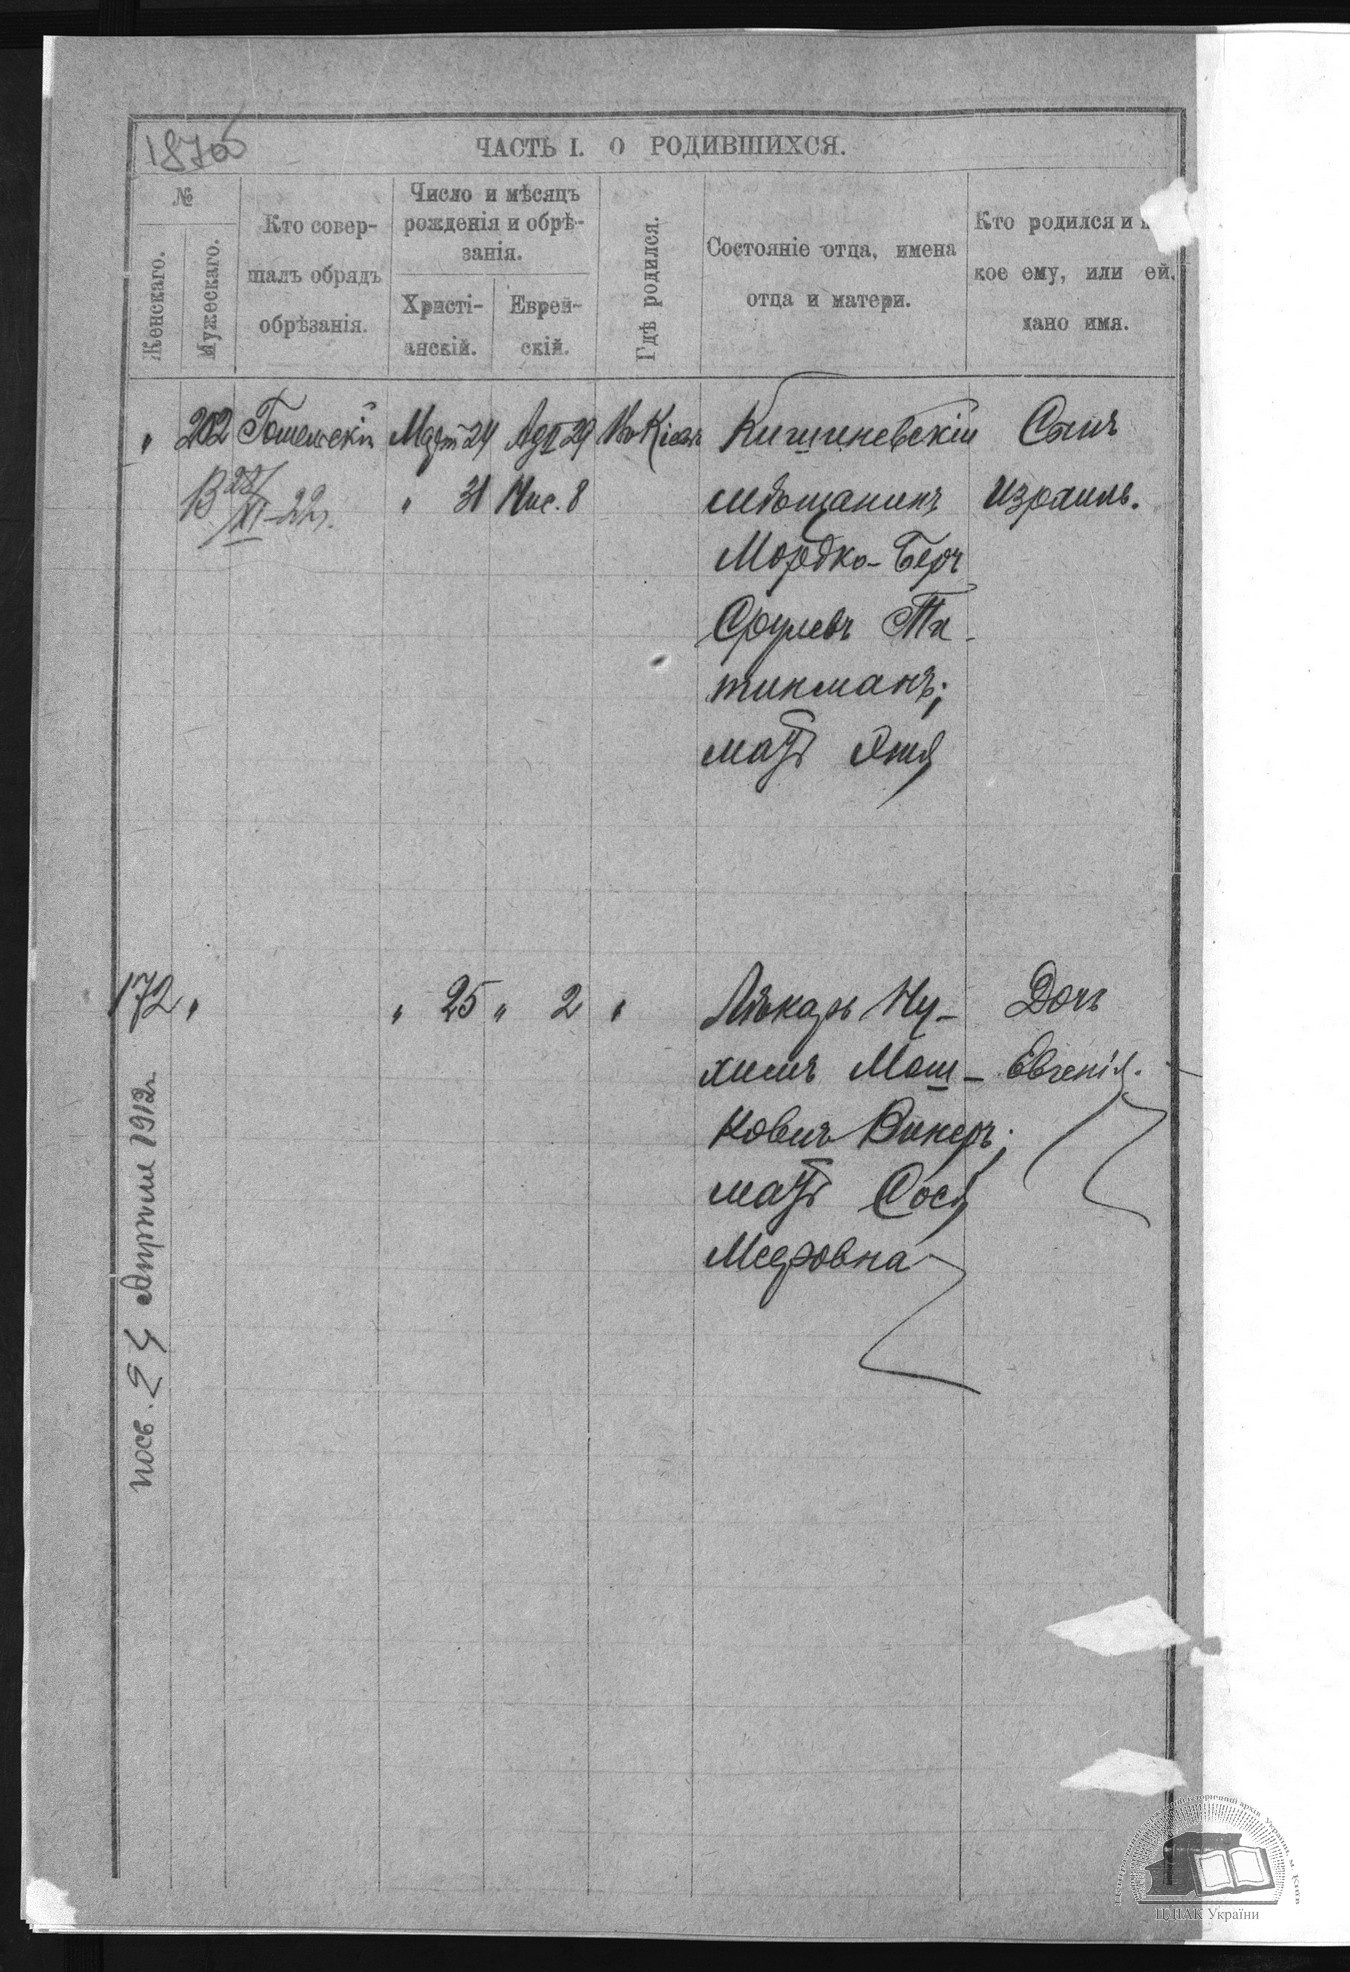 ЧАСТЬ I. О РОДИВШИХСЯ.
№
Женскаго.
Мужескаго.
Кто совер-
шалъ обрядъ
обрѣзанія.
Число и мѣсяцъ
рожденія и обрѣ-
занія.
Христі-
анскій.
Еврей-
скій.
Гдѣ родился.
Состояніе отца, имена
отца и матери.
Кто родился и
кое ему, или ей.
дано имя.
" 202 Гомельскій Март 24 Ад II 29 Въ Кіевѣ
" 31 Нис. 8
Кишиневскій
мѣщанинъ
Мордко-Беръ
Срулевъ
тикманъ;
мать
Сынъ
Израиль.
172 " " 25 " 2 "
Лѣкарь Ну-
химъ Мош-
ковичъ Винеръ;
мать Сося
Мееровна
Дочь
Евгенія.
24 Апрѣля 1912 г.
ЦДІАК України